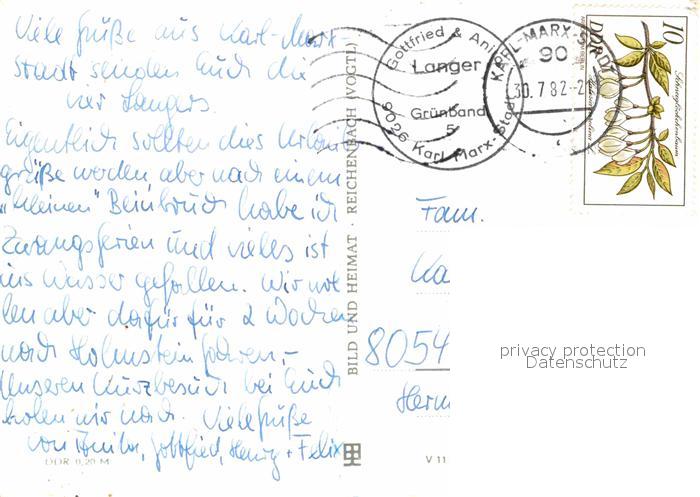 Viele Grüße aus Karl-Marx-
Stadt senden Euch die
vier Langers.
Eigentlich sollten dies Urlaubs
grüße werden aber nach einem
"kleinen" Beinbruch habe ich
Zwangsferien und vieles ist
ins Wasser gefallen. Wir wol
len aber dafür für 2 Wochen
nach Hohnstein fahren, -
Unseren Kurzbesuch bei Euch
holen wir nach. Viele Grüße
von Gottfried, + Felix
DDR 0,20 M
BILD UND HEIMAT · REICHENBACH (VOGTL)
V 11
Gottfried & Ani
Langer
Grünband
5
9026 Karl-Marx-Stadt
KARL-MARX-STADT
90
30.7.82-2
DDR
10
Schneeglöckchenbaum
Fam.
Ka
8054
Herm
privacy protection
Datenschutz